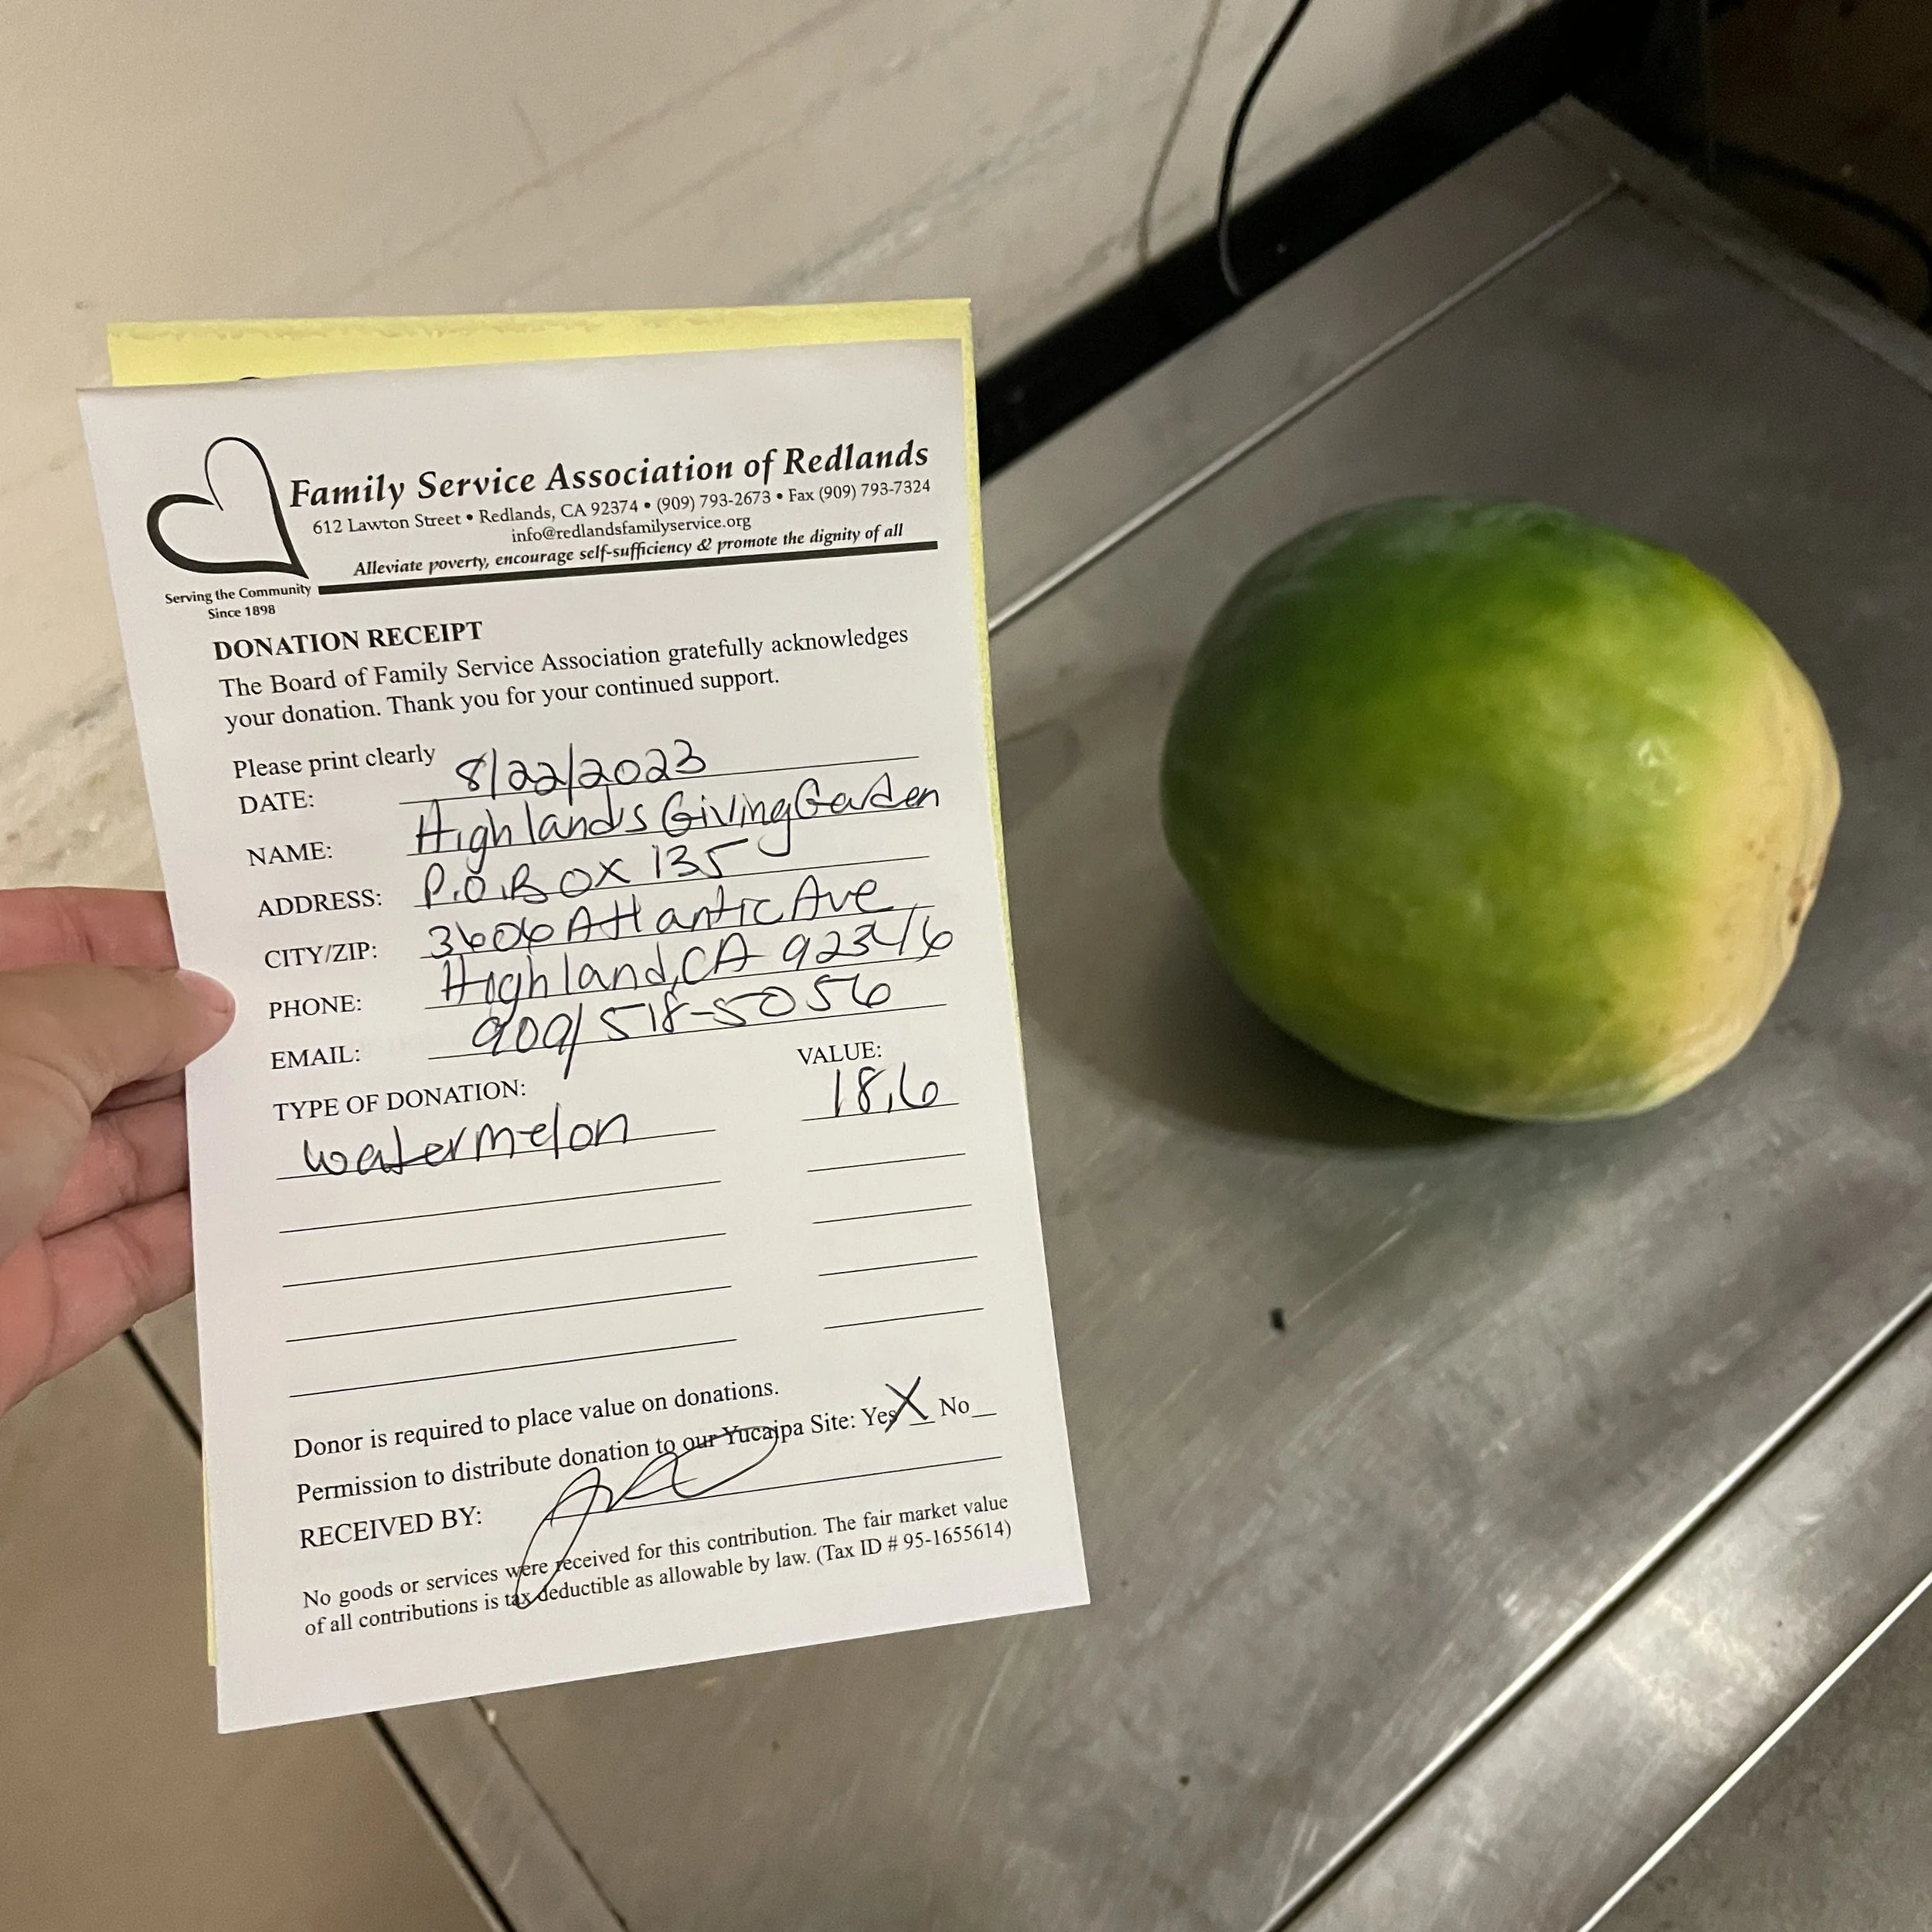 Family Service Association of Redlands
612 Lawton Street • Redlands, CA 92374 • (909) 793-2673 • Fax (909) 793-7324
info@redlandsfamilyservice.org
Alleviate poverty, encourage self-sufficiency & promote the dignity of all
Serving the Community
Since 1898
DONATION RECEIPT
The Board of Family Service Association gratefully acknowledges
your donation. Thank you for your continued support.
Please print clearly
DATE: 8/22/2023
NAME: Highlands Giving Garden
ADDRESS: P.O. Box 135
CITY/ZIP: 3606 Atlantic Ave
PHONE: Highland, CA 92346
EMAIL: 909/518-5056
TYPE OF DONATION: VALUE:
watermelon 18.6
Donor is required to place value on donations.
Permission to distribute donation to our Yucaipa Site: Yes X No
RECEIVED BY:
No goods or services were received for this contribution. The fair market value
of all contributions is tax deductible as allowable by law. (Tax ID # 95-1655614)